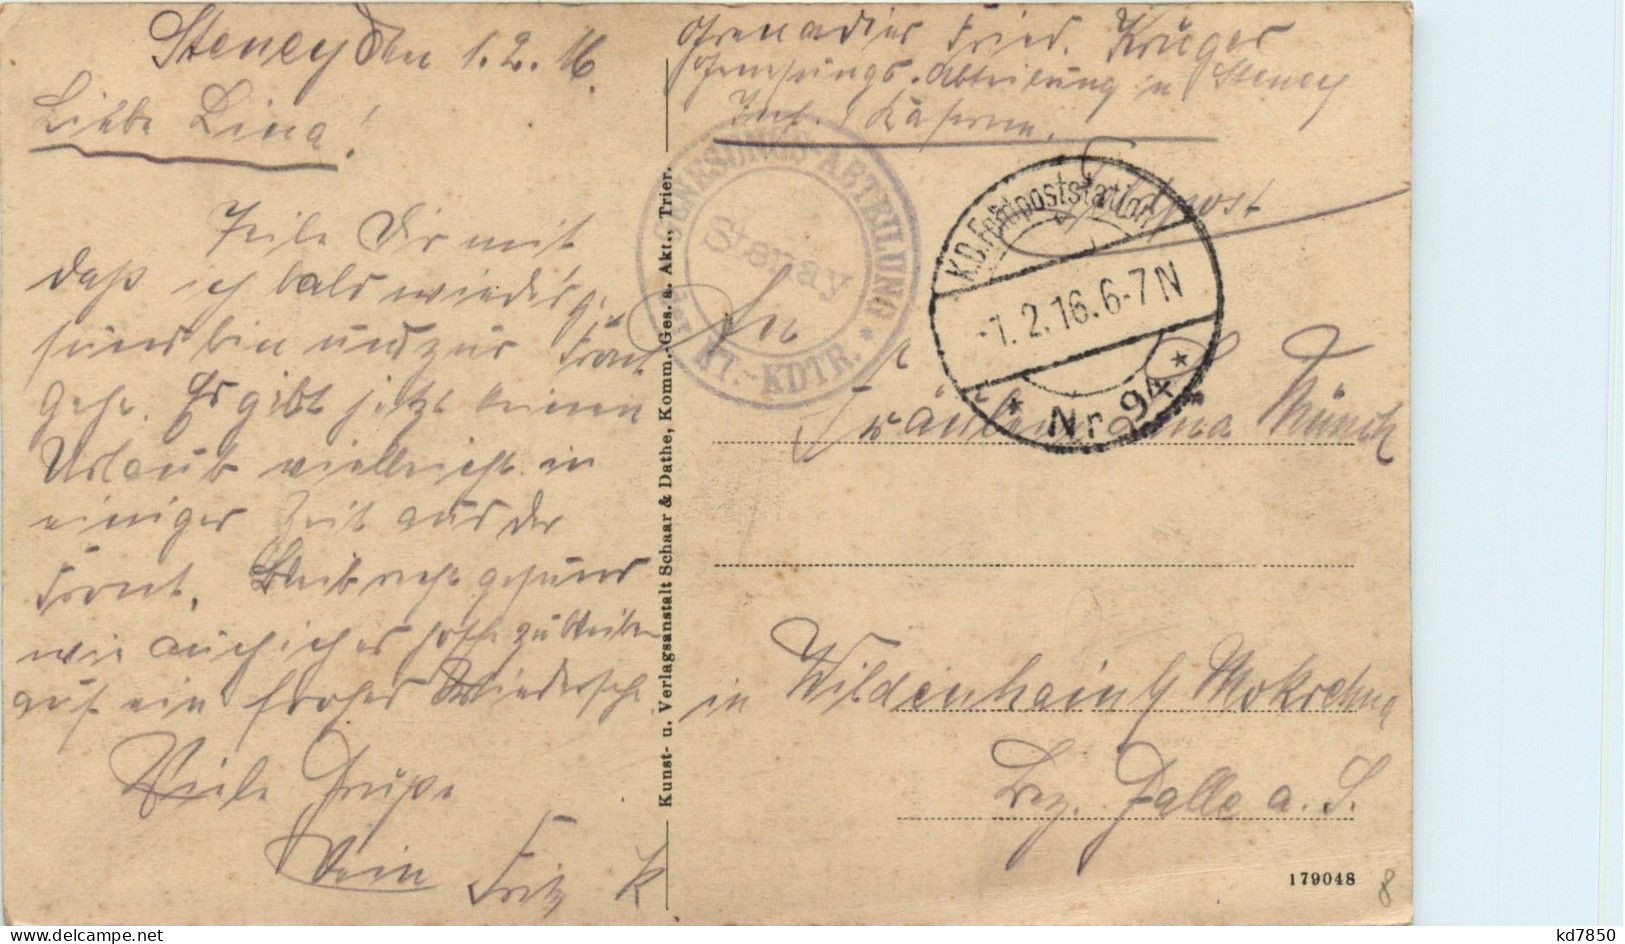 Steney den 1.2.16.
Liebe Lina!
Teile Dir mit
daß ich bald wieder ge
sund bin und zur Front
gehe. Es gibt jetzt keinen
Urlaub vielleicht in
einiger Zeit aus der
Front. Bleib recht gesund
wie auch ich es hoffe zu bleiben
auf ein frohes Wiedersehn
Viele Grüße
Dein Fritz K
Kunst- u. Verlagsanstalt Schaar & Dathe, Komm.-Ges. a. Akt., Trier.
Grenadier Fried. Krüger
Genesungs-Abteilung in Steney
Inf. Kaserne.
Feldpost
GENESUNGS-ABTEILUNG
Stenay
ET.-KDTR.
K.D. Feldpoststation
-1.2.16.6-7N
* Nr 94 *
An
Fräulein Lina Münch
in Wildenhain b/ Mokrehna
Bez. Halle a. S.
179048
8
kd7850